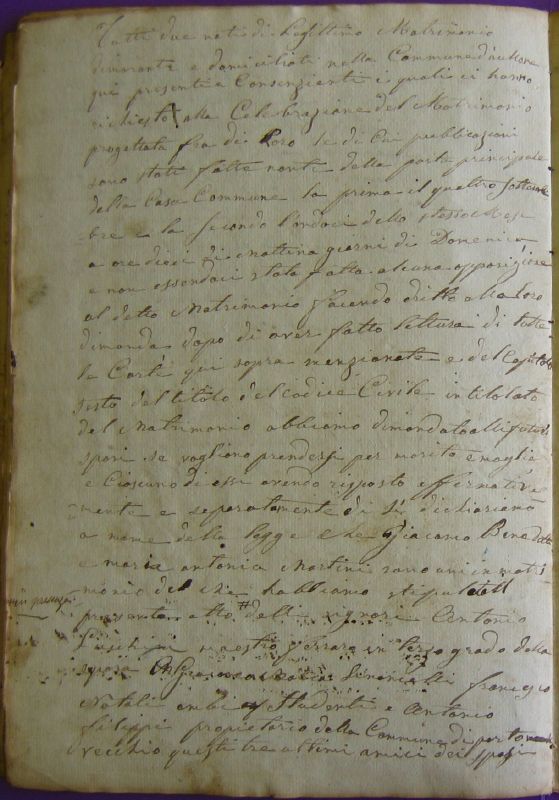 Tutti due nati di Legittimo Matrimonio
dimoranti e domiciliati nella Commune
qui presenti e Consenzienti i quali ci hanno
richiesto alla Celebrazione del Matrimonio
progettato fra di Loro le di Cui pubblicazioni
sono stati fatte nanti della porta principale
della Casa Commune la prima il quattro settem
bre e la seconda l'undeci dello stesso Mese
a ore dieci di mattina giorni di Domenica
e non essendoci stata fatta alcuna opposizione
al detto Matrimonio facendo dritto alla Loro
dimanda dopo di aver fatto lettura di tutte
le Carte qui sopra menzionate e del Capitolo
sesto del titolo del Codice Civile intitolato
del Matrimonio abbiamo dimandato alli futuri
sposi se vogliono prendersi per marito e moglie
e Ciascuno di essi avendo risposto affermativa
mente e separatamente di Si dichiariamo
a nome della legge che Giacomo
e maria antonia Martini sono uniti in matri
monio del che habbiamo stipulato il
presente atto delli signori Antonio
maestro ferraro in terzo grado della
sposa Simonelli francesco
Natali ambi studenti e Antonio
filippi proprietario della Commune di porto
vecchio questi tre ultimi amici dei sposi